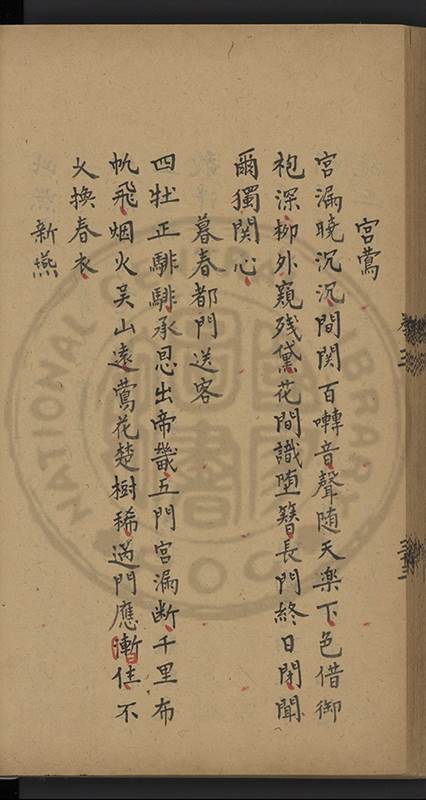 宮鶯
宮漏曉沉沉間関百囀音聲随天楽下色借御
袍深柳外窺残黛花間識堕簪長門終日閉聞
爾獨関心
暮春都門送客
四牡正騑騑承恩出帝畿五門宮漏断千里布
帆飛烟火吴山遠鶯花楚樹稀過門應漸佳不
久換春衣
新燕